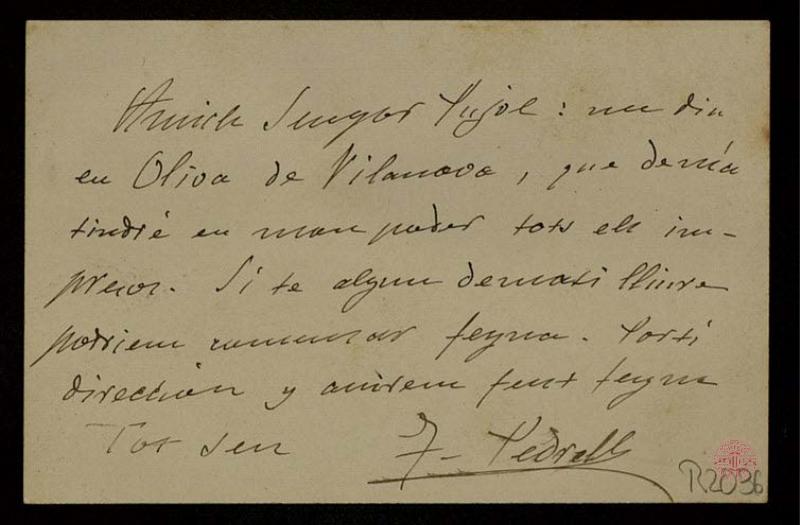 Amich Senyor Pujol: me diu
en Oliva de Vilanova, que demá
tindré en mon poder tots els im-
presos. Si te algun dematí lliure
podriem comensar feyna. Porti
direccion y anirem fent feyna
Tot seu F. Pedrell
R2036